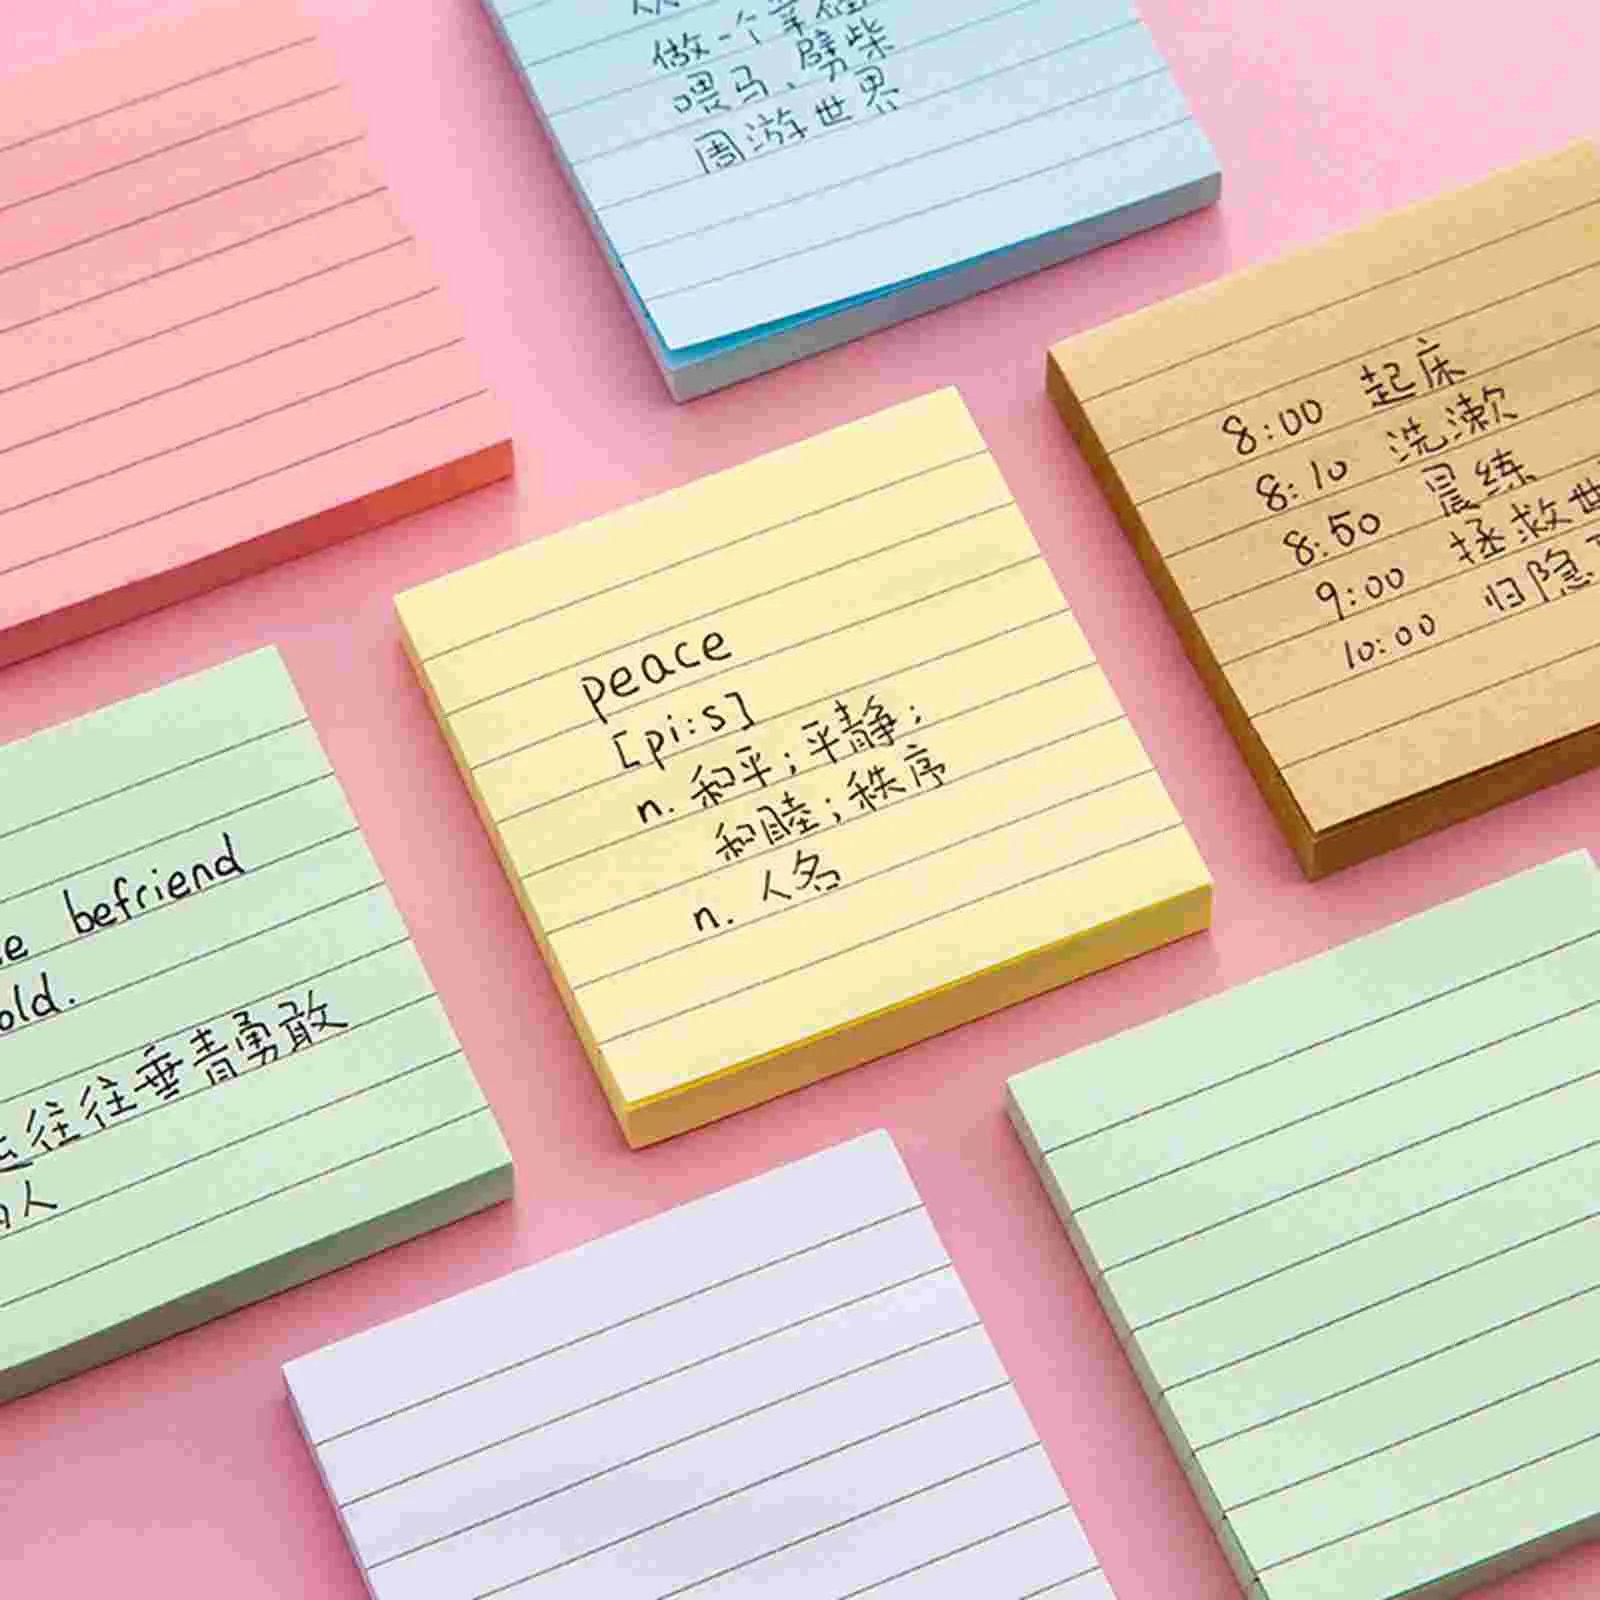 做一个幸福
喂马、劈柴
周游世界
8:00 起床
8:10 洗漱
8:50 晨练
9:00 拯救世
10:00 归隐
peace
[pi:s]
n. 和平；平静；
和睦；秩序
n. 人名
befriend
old.
往往垂青勇敢
人